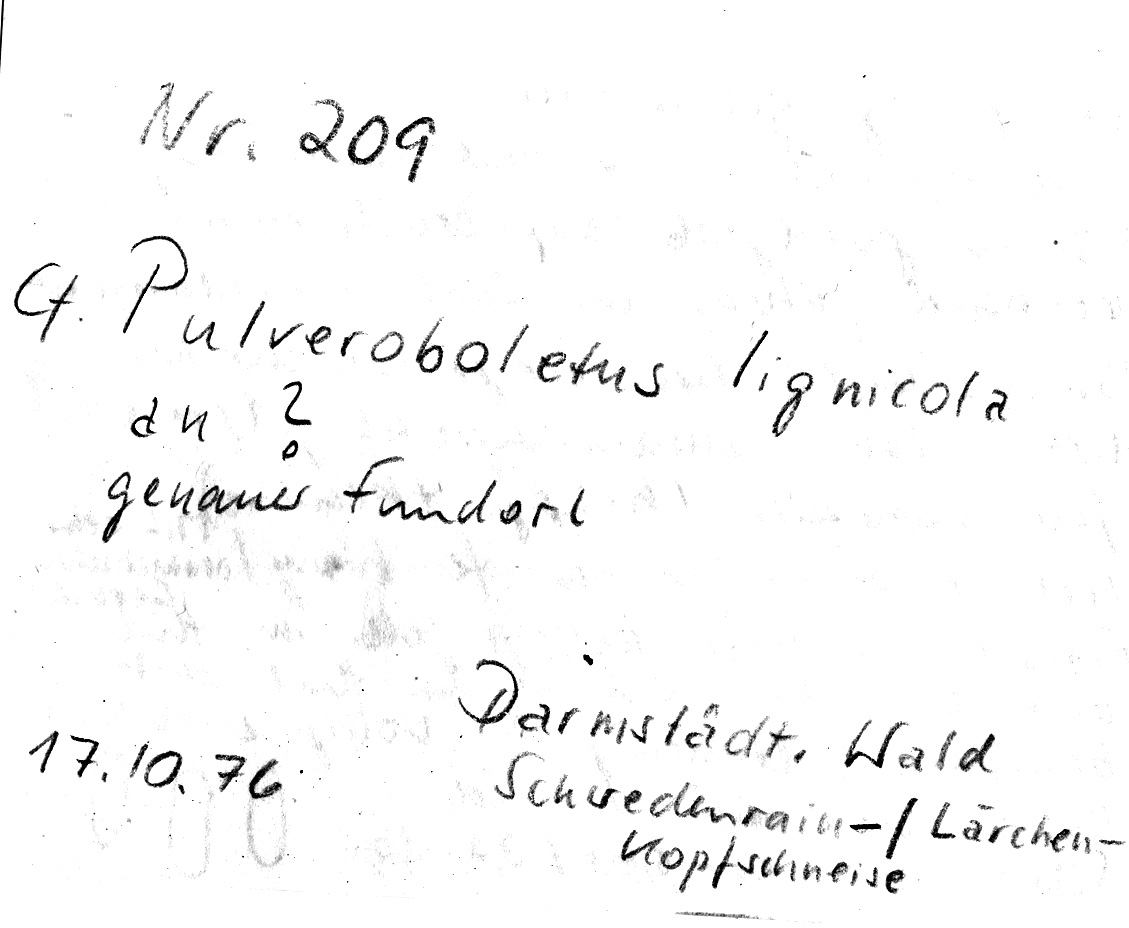 Nr. 209
Cf. Pulveroboletus lignicola
an ?
genauer Fundort
17.10.76
Darmstädt. Wald
Schwedenrain-/Lärchen-
Kopfschneise